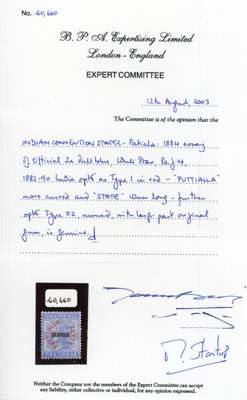 No. 60,660
B. P. A. Expertising Limited
London - England
EXPERT COMMITTEE
12th August, 2003
The Committee is of the opinion that the
INDIAN CONVENTION STATES - Patiala: 1884 essay
of Official 2a. dull blue, Wmk Star, P.14,
1882-90 India optd as Type 1 in red - "PUTTIALLA"
more curved and "STATE" 10mm long - further
optd Type O2, unused, with large part original
gum, is genuine.
60,660
SERVICE
Neither the Company nor the members of the Expert Committee can accept
any liability, either collective or individual, for any opinion expressed.